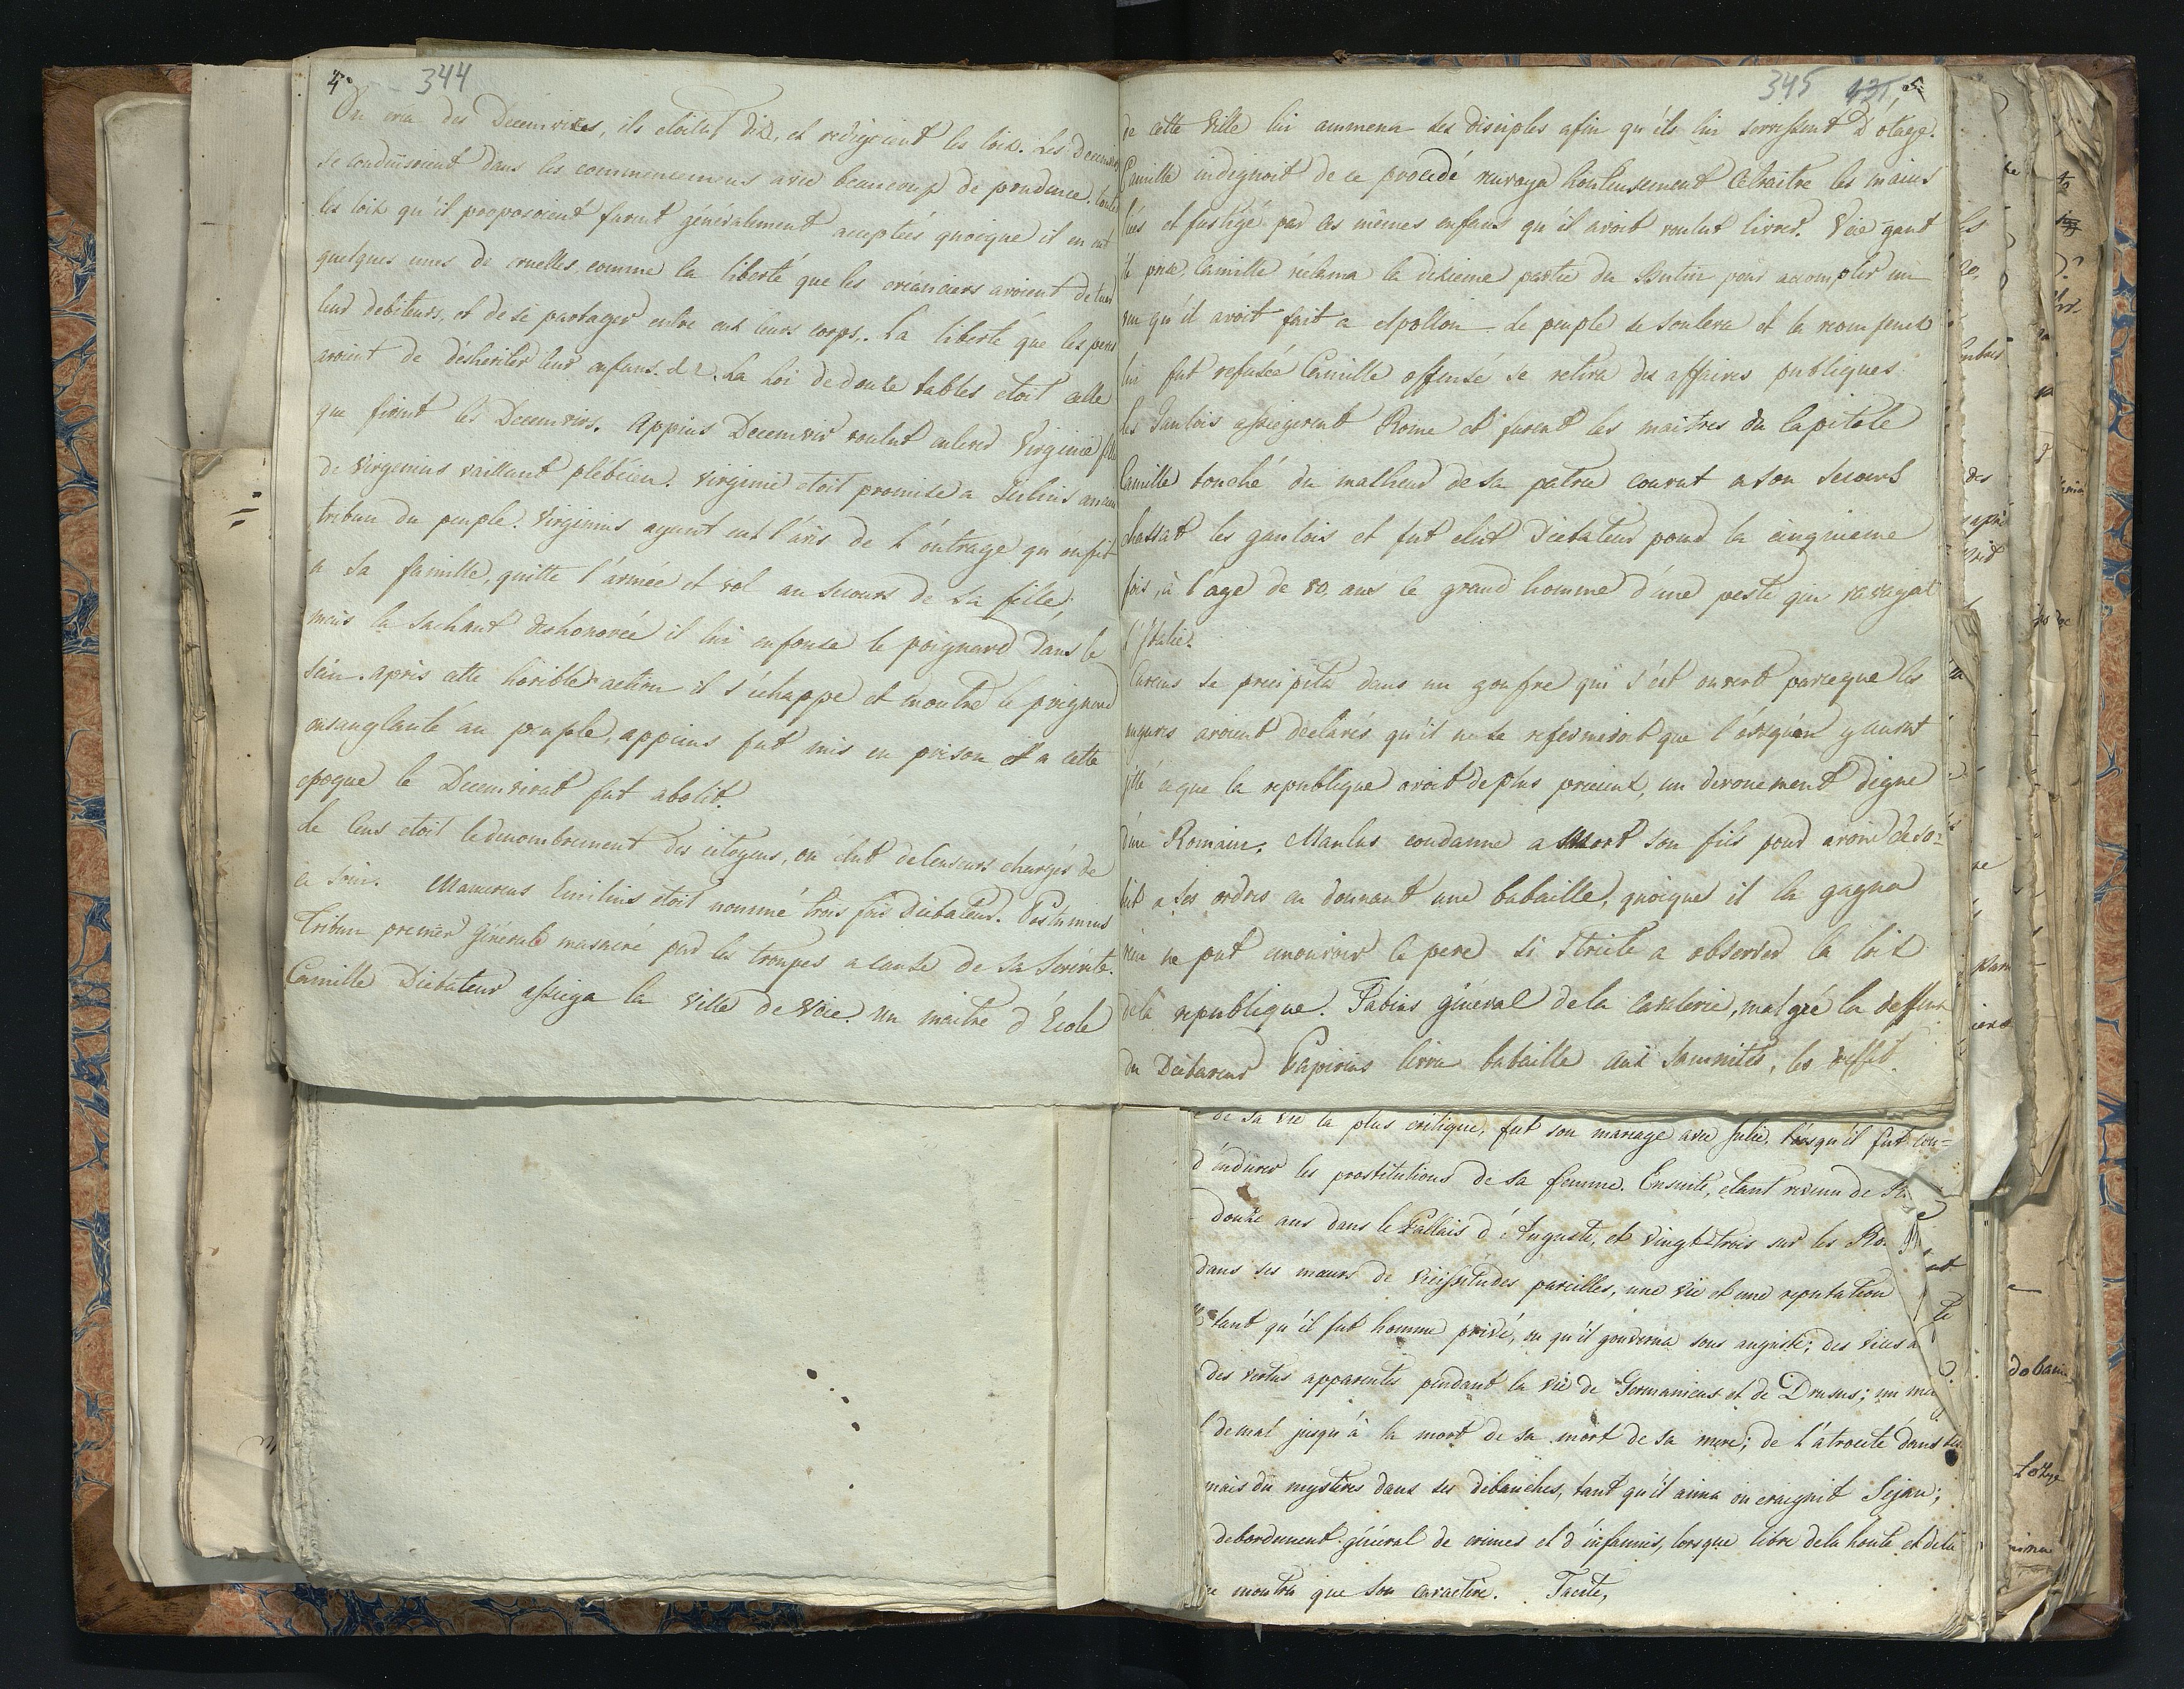 4° 344
On créa des Decemvires, ils etoient dix, et redigeoient les loix. Les Decemvirs
se conduisoient dans les commencemens avec beaucoup de prudence. toutes
les loix qu'il proposoient furent généralement acceptées quoique il en eut
quelques unes de cruelles, comme la liberté que les créanciers avoient de tuer
leur debiteurs, et de se partager entre eux leurs corps. La liberté que les peres
avoient de désheriter leur enfans. &c. La Loi de douze tables etoit celle
que firent les Decemvirs. Appius Decemvir voulut enlever Virginie fille
de Virginius vaillant plebéien. Virginie etoit promise a Icilius ancien
tribun du peuple. Virginius ayant eut l'avis de l'outrage qu'on fit
a sa famille, quitte l'armée et vol au secours de sa fille;
mais la sachant deshonorée il lui enfonce le poignard dans le
sein. après cette horible action il s'échappe et montre le poignard
ensanglanté au peuple, appius fut mis en prison et a cette
epoque le Decemvirat fut abolit.
Le Cens etoit le denombrement des citoyens, on élut de Censeurs chargés de
ce soin. Mamercus Emilius étoit nommé trois fois Dictateur. Postumius
Tribun premier Général masacré par les troupes a cause de sa severité.
Camille Dictateur assiega la ville de Veie. un maitre d'École
345 431 5
de cette Ville lui ammena ses disciples afin qu'ils lui servissent d'otage.
Camille indignoit de ce procedé renvoya honteusement ce traitre les mains
liés et fustigé par ces mêmes enfans qu'il avoit voulut livrer. Veie ÿant
été prise, Camille réclama la dixieme partie du Butin pour accomplir un
vœu qu'il avoit fait a Apollon. Le peuple se souleva et la recompense
lui fut refusée Camille offensé se retira des affaires publiques.
les Gaulois assiegerent Rome et furent les maitres du Capitole
Camille touché du malheur de sa patrie courut a son secours
chassat les gaulois et fut élut Dictateur pour la cinquieme
fois, à l'age de 80. ans ce grand homme d'une peste qui ravagat
l'Italie.
Curcius se precipita dans un goufre qui s'est ouvert parceque les
augures avoient declarés qu'il ne se refermeroit que lorsqu'on y auroit
jetté ce que la republique avoit de plus precieux, un devouement digne
d'un Romain. Manlus condamne a Mort son fils pour avoir deso-
béit a ses ordres en donnant une bataille, quoique il la gagna
rien ne put emouvoir le pere si stricte a observer la loix
de la republique. Fabius général de la cavalerie, malgré la deffense
du Dictateur Papirius livra bataille aux Samnites, les deffit.
de sa vie la plus critique, fut son mariage avec Julie, lorsqu'il fut con-
d'endurer les prostitutions de sa femme. Ensuite, etant revenu de
douze ans dans le Pallais d'Auguste, et vingt-trois sur les Ro
dans ses mœurs de vicissitudes pareilles, une vie et une reputation
tant qu'il fut homme privé, ou qu'il gouverna sous auguste; des vices
des vertus apparentes pendant la vie de Germanicus et de Drusus; un
de mal jusqu'à la mort de sa mort de sa mere; de l'atrocité dans
mais du mysteres dans ses débauches, tant qu'il aima ou craignit Sejan;
debordement général de crimes et d'infamies, lorsque libre de la honte et de la
montra que son caractère. Tacite,